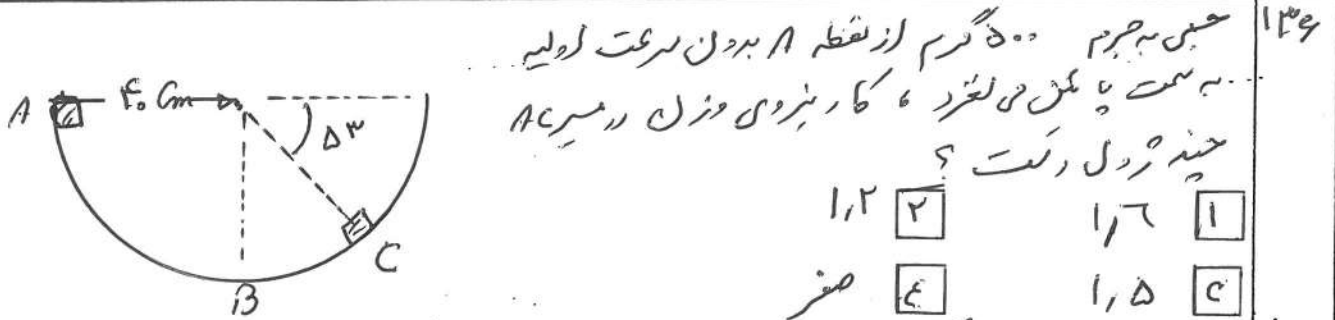 ۱۳۶
جسمی به جرم ۵۰۰ گرم از نقطه A بدون سرعت اولیه
به سمت پائین می لغزد ، کار نیروی وزن در مسیر AC
چند ژول است ؟
۱ ۱٫۶ ۲ ۱٫۲
۳ ۱٫۵ ۴ صفر
A ۴۰ Cm
۵۳
C
B